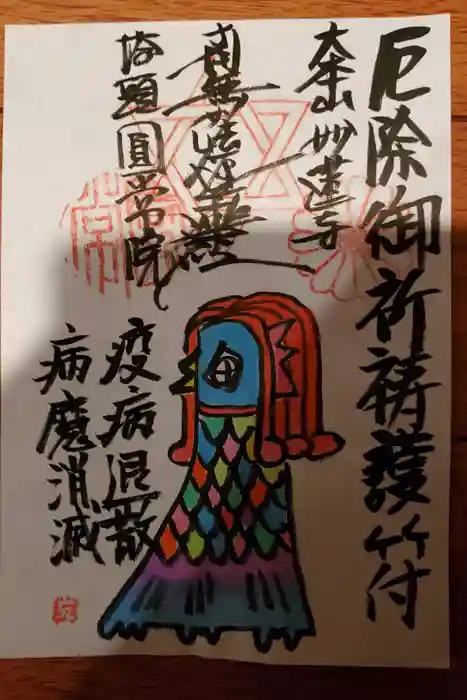 厄除御祈祷護符付
大本山妙蓮寺
南無妙法蓮華経
塔頭圓常院
疫病退散
病魔消滅